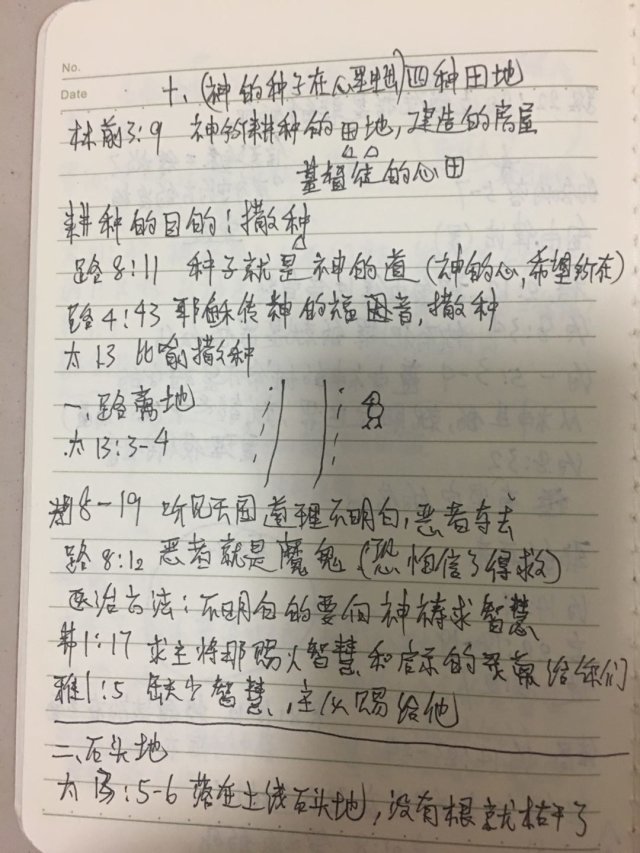 No.
Date
十、(神的种子在心里) 四种田地
林前3:9 神所耕种的田地,建造的房屋
基督徒的心田
耕种的目的:撒种
路8:11 种子就是神的道 (神的心,希望所在)
路4:43 耶稣传神的国福音,撒种
太13 比喻撒种
一、路旁地
太13:3-4
18-19 听见天国道理不明白,恶者夺去
路8:12 恶者就是魔鬼 (恐怕信了得救)
医治方法:不明白的要向神祷求智慧
弗1:17 求主将那赐人智慧和启示的灵赏给你们
雅1:5 缺少智慧,主必赐给他
二、石头地
太13:5-6 落在土浅石头地,没有根就枯干了